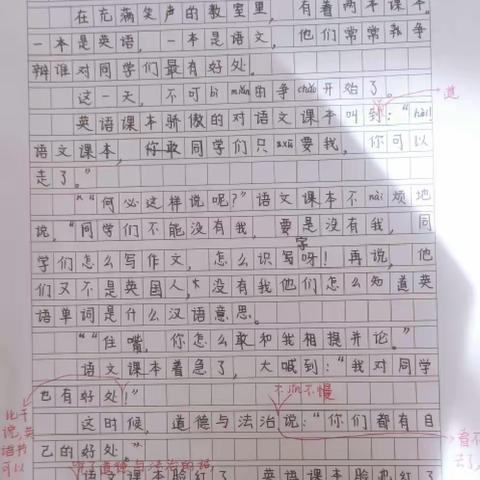 在充满笑声的教室里，有着两本课本。
一本是英语，一本是语文，他们常常争
辩谁对同学们最有好处。
这一天，不可bì miǎn的争chǎo开始了。
道
英语课本骄傲的对语文课本叫到：“
语文课本，你敢同学们只xū要我，你可以
走了。”
“何必这样说呢？”语文课本不nài烦地
说，“同学们不能没有我，要是没有我，同
字
学们怎么写作文，怎么识写呀！再说，他
们又不是英国人，没有我他们怎么知道英
语单词是什么汉语意思。
““住嘴，你怎么敢和我相提并论。”
语文课本着急了，大喊到：“我对同学
也有好处！”
不慢
这时候，道德与法治说：“你们都有自
己的好处。”
说，英
语书
可以
去了，
道德与法治的话
语文课本脸红了，英语课本脸也红了